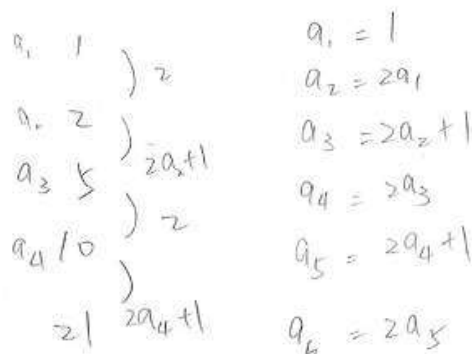 a₁ 1
) 2
a₂ 2
) 2a₂+1
a₃ 5
) 2
a₄ 10
)
21 2a₄+1
a₁ = 1
a₂ = 2a₁
a₃ = 2a₂+1
a₄ = 2a₃
a₅ = 2a₄+1
a₆ = 2a₅